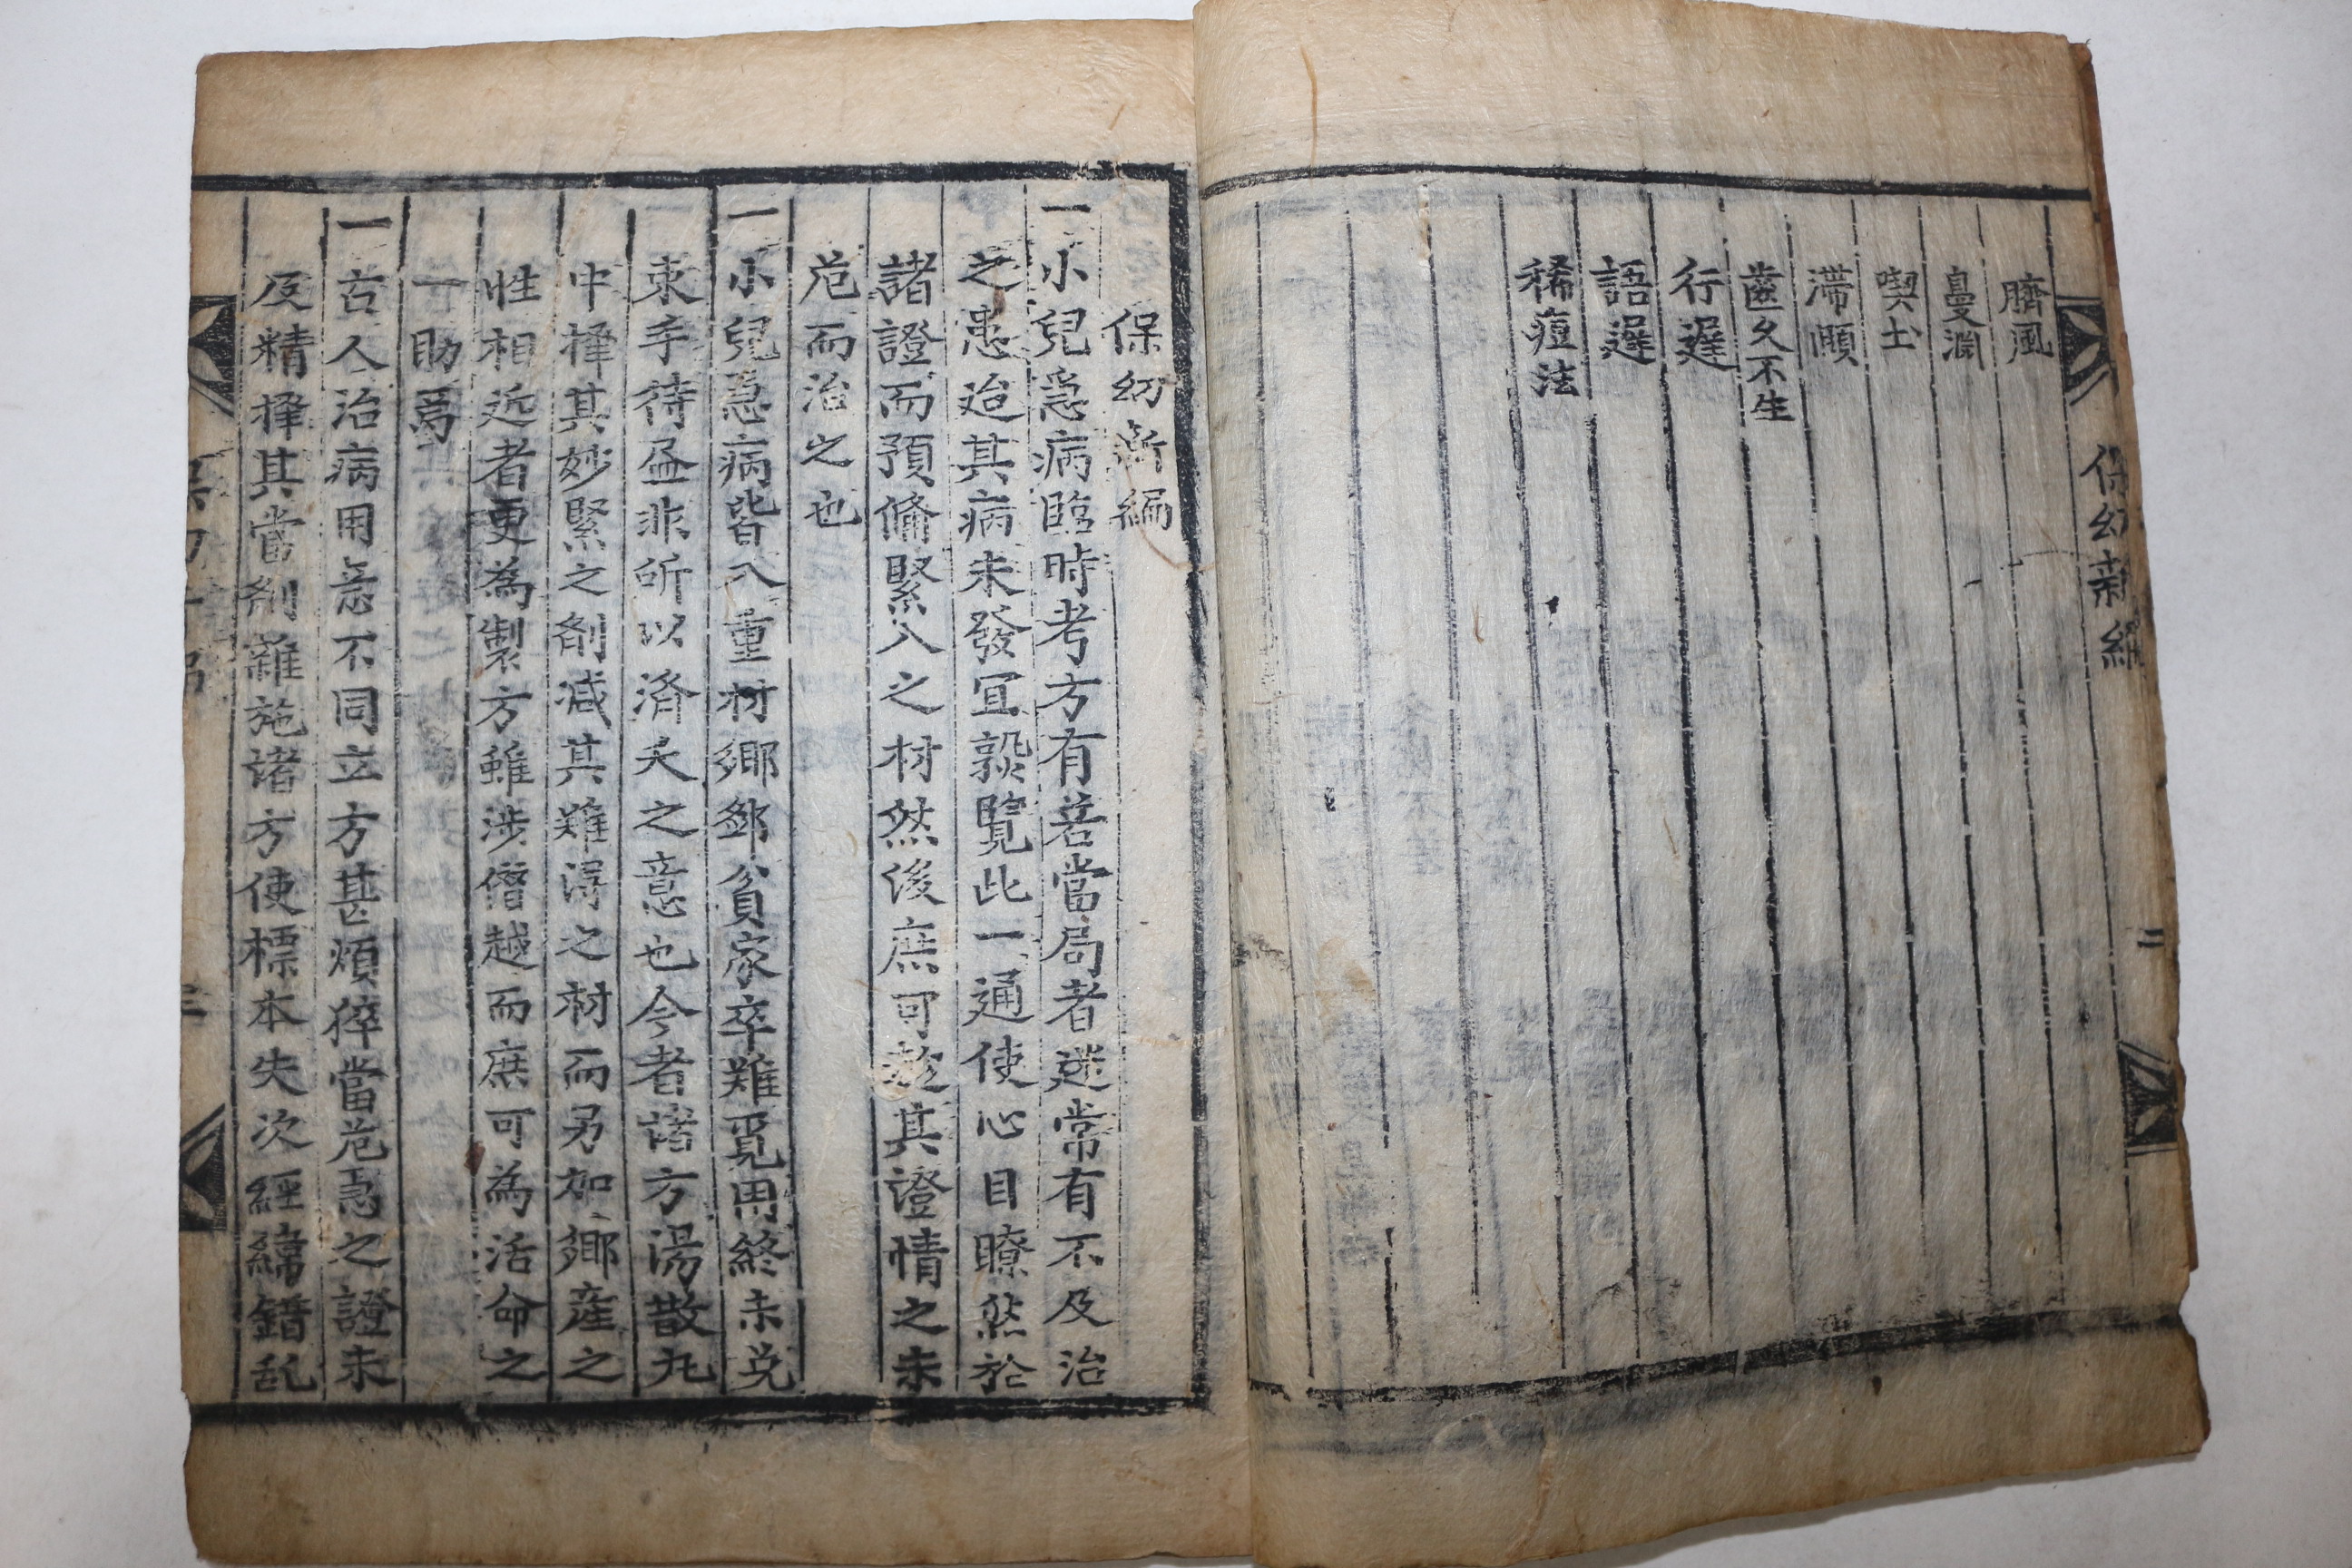 臍風
鼻淵
喫土
滯頤
齒久不生
行遲
語遲
稀痘法
保幼新編
二
保幼新編
一小兒急病臨時考方有若當局者迷常有不及治
之患迨其病未發宜熟覽此一通使心目瞭然於
諸證而預備緊入之材然後庶可趁其證情之未
危而治之也
一小兒急病皆入重材鄕鄙貧家卒難覓用終未免
束手待盡非所以濟夭之意也今者諸方湯散丸
中擇其妙緊之劑减其難淂之材而另加鄕産之
性相近者更為製方雖涉僭越而庶可為活命之
一助焉
一古人治病用意不同立方甚煩猝當危急之證未
及精擇其當劑雜施諸方使標本失次經緯錯乱